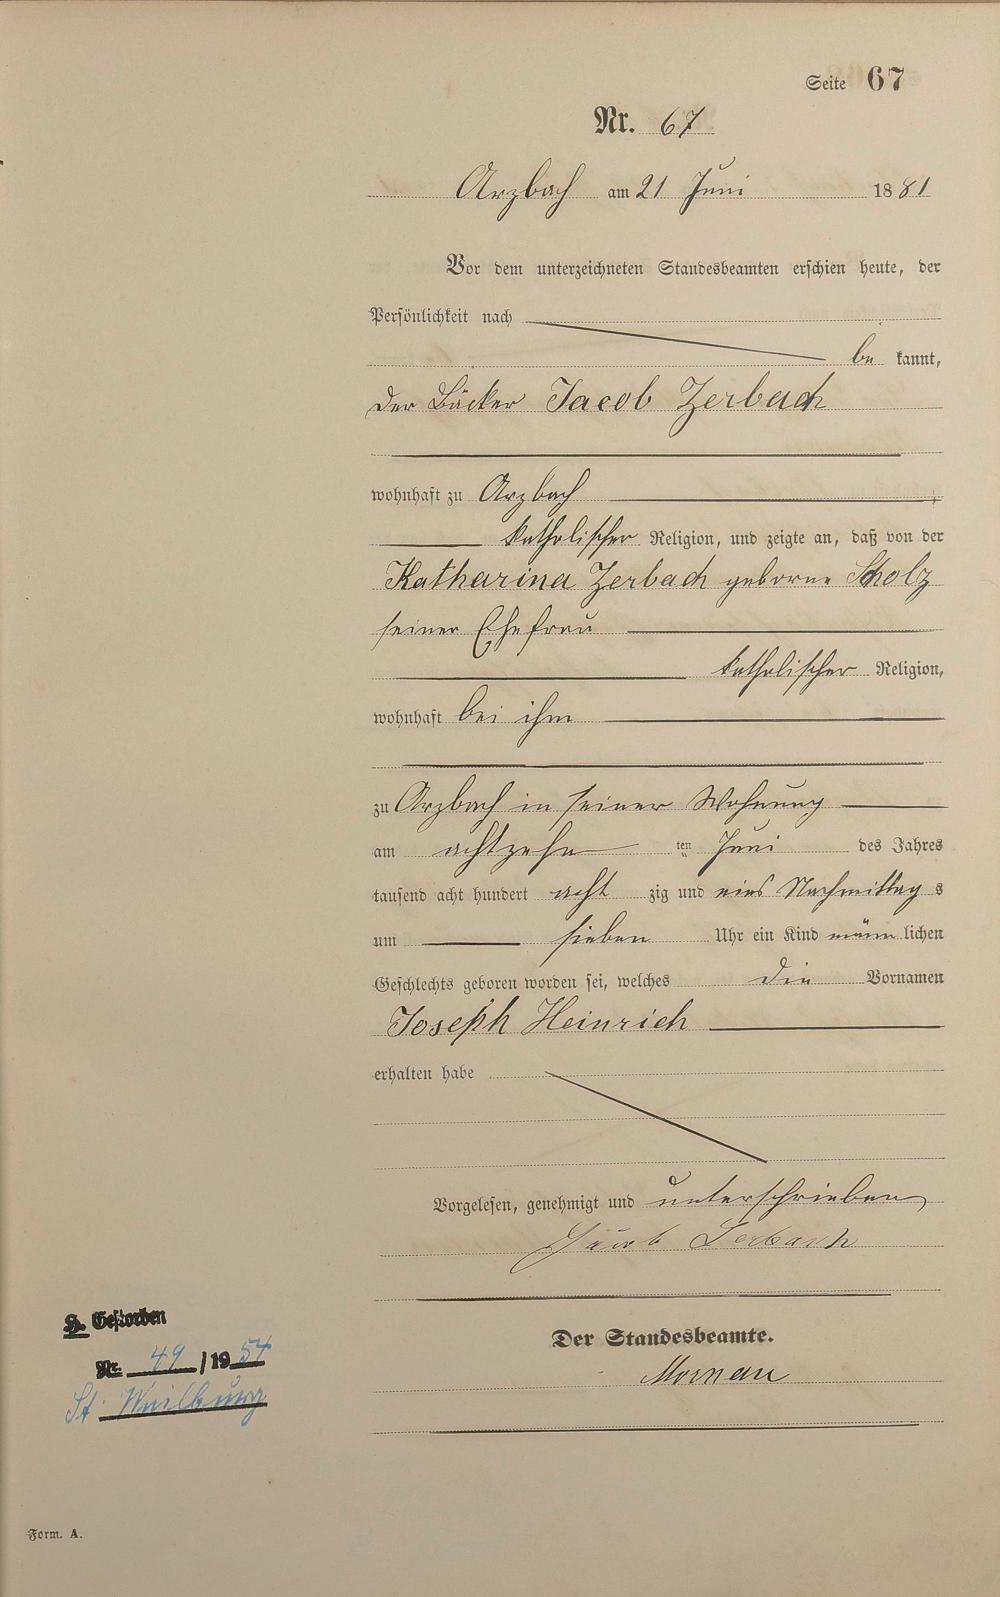 Seite 67
Nr. 67
Arzbach am 21 Juni 1881
Vor dem unterzeichneten Standesbeamten erschien heute, der
Persönlichkeit nach
be kannt,
der Bäcker Jacob Zerbach
wohnhaft zu Arzbach
katholischer Religion, und zeigte an, daß von der
Katharina Zerbach geborne Scholz
seiner Ehefrau
katholischer Religion,
wohnhaft bei ihm
zu Arzbach in seiner Wohnung
am achtzehn ten Juni des Jahres
tausend acht hundert acht zig und eins Nachmittag s
um sieben Uhr ein Kind männ lichen
Geschlechts geboren worden sei, welches die Vornamen
Joseph Heinrich
erhalten habe
Vorgelesen, genehmigt und unterschrieben
Jacob Zerbach
Der Standesbeamte.
H. Gestorben
Nr. 49 / 19 54
St. Weilburg
Form. A.